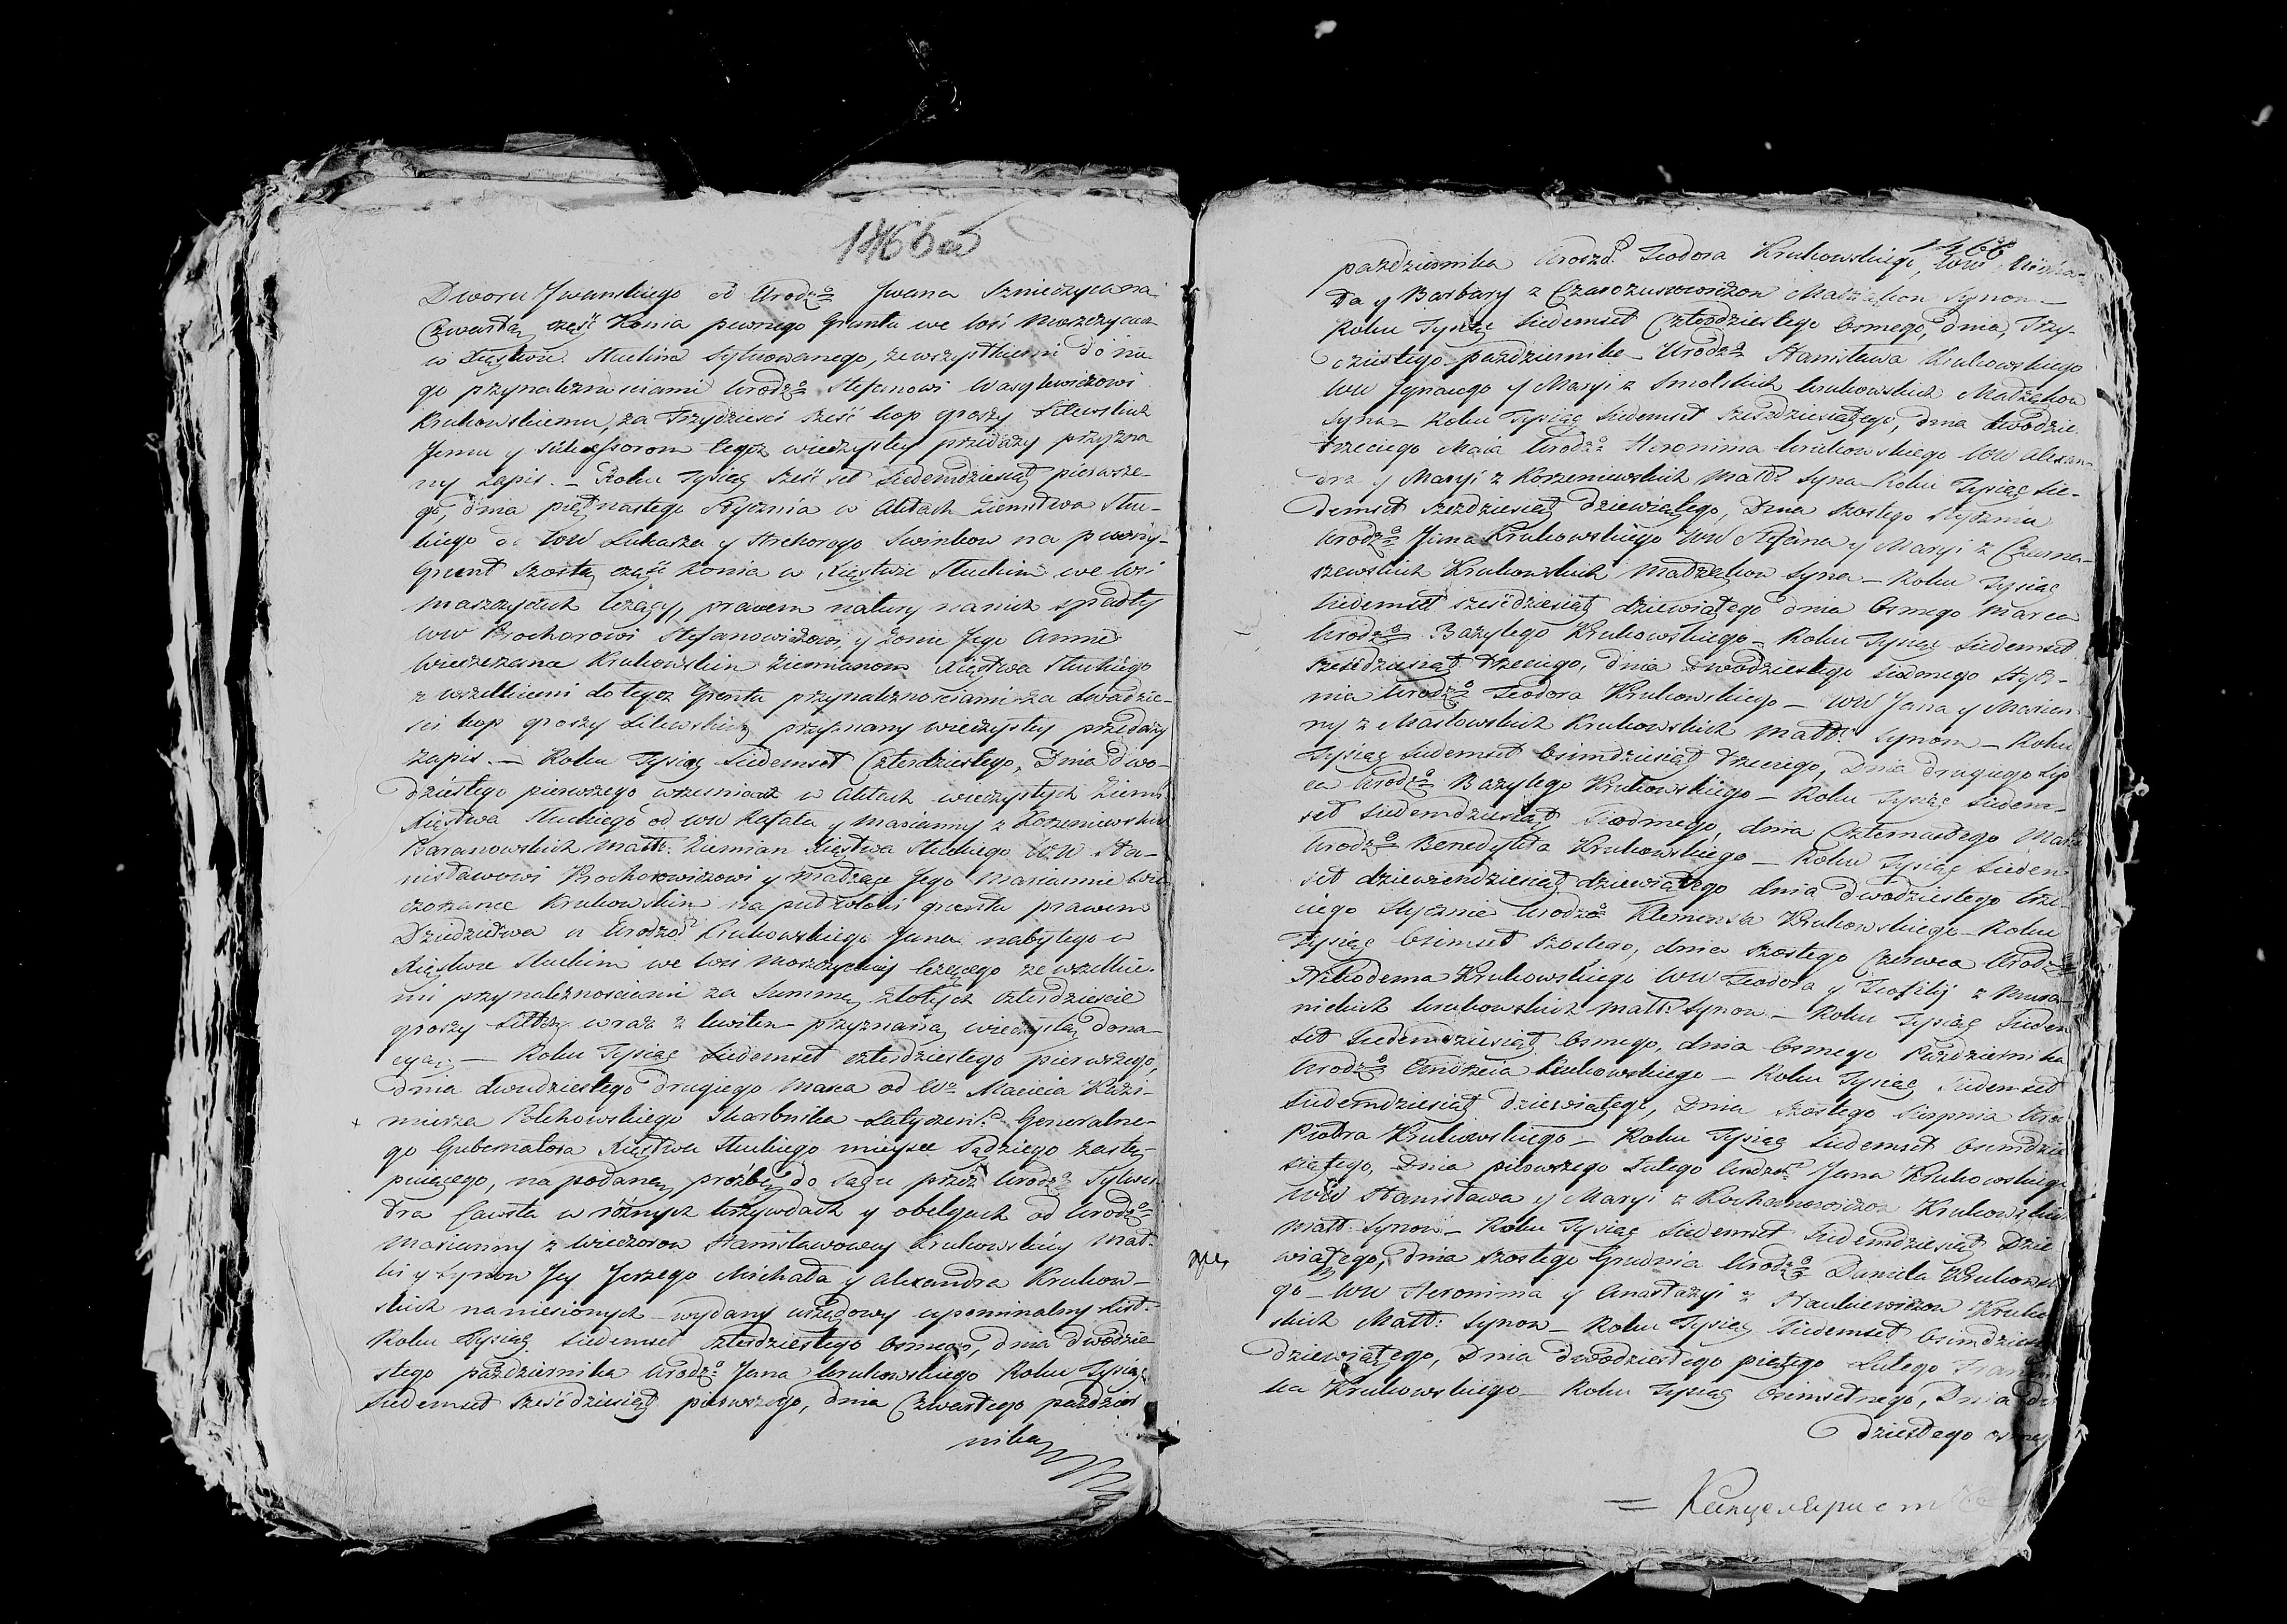 1466a
Dworu Jwanskiego od Urodzo Jwana
Czwartą część Konia pewnego Gruntu we wsi
w Xięstwie Słuckim sytuowanego, ze wszystkiemi do nie-
go przynależnosciami Urodzo Stefanowi Wasylewiczowi
Krukowskiemu, za Trzydzieści sześć kop groszy Litewskich
Jemu y Sukcessorom tegoż wieczystey przedaży przyzna
ny zapis. – Roku Tysiąc sześć set Siedemdziesiąt pierwsze-
go, dnia piętnastego Stycznia w Aktach Ziemstwa Słu-
ckiego od WW Łukasza y Hrehorego Swinków na pewny
Grunt szostą część konia w Xięstwie Słuckim we wsi
Maszczycach leżący, prawem natury na nich spadły
WW Prochorowi Stefanowiczowi, y żonie Jego Annie
Krukowskim Ziemianom Xięstwa Słuckiego
z wszelkiemi do tegoż Gruntu przynależnosciami za dwadzie-
ści kop groszy Litewskich przyznany wieczystey przedaży
zapis. – Roku Tysiąc Siedemset Czterdziestego, Dnia dwo-
dziestego pierwszego w Aktach wieczystych Ziem:
Xięstwa Słuckiego od WW Rafała y Marianny z Korzeniewskich
Baranowskich Małż: Ziemian Xięstwa Słuckiego WW Sta-
nisławowi Prochorowiczowi y małżące Jego Mariannie
Krukowskim na gruntu prawem
Dziedzictwa u Urodzo Krukowskiego Jana nabytego w
Xięstwie Słuckim we wsi leżącego ze wszelkie-
mi przynależnosciami za Summę złotych czterdzieście
groszy wraz z kwitem przyznaną wieczystą dona-
cyą – Roku Tysiąc Siedemset czterdziestego pierwszego,
dnia dwudziestego drugiego Marca od Wo Macieia Kazi-
mierza Polchowskiego Skarbnika Generalne-
go Gubernatora Xięstwa Słuckiego mieysce Sądziego zastę-
puiącego, na podaną prozbę do Sądu przez Urodzo Sylwes
dra w różnych krzywdach y obelgach od Urodzo
Marianny z Wieczorow Stanisławowey Krukowskiey Mat-
ki y Synow Jey Jerzego Michała y Alexandra Krukow-
skich naniesionych – wydany urzędowy upominalny List.
Roku Tysiąc Siedemset czterdziestego osmego, dnia dwodzie-
stego października Urodzo Jana Krukowskiego Roku Tysiąc
Siedemset sześćdziesiąt pierwszego, dnia Czwartego paździer
nika
1466
października Urodzo Teodora Krukowskiego, WW
da y Barbary z Małżąkow Synow –
Roku Tysiąc Siedemset Czterdziestego Osmego, dnia, Trzy-
dziestego października Urodzo Stanisława Krukowskiego
WW Jgnacego y Maryi z Smolskich Krukowskich Małżakow
Syna – Roku Tysiąc Siedemset sześdziesiątego, dnia dwodzie.
trzeciego Maia Urodzo Heronima Krukowskiego WW Alexan-
dra y Maryi z Korzeniewskich Małżo Syna Roku Tysiąc Sie-
demset sześdziesiąt dziewiątego, Dnia szostego Stycznia
Urodzo Jana Krukowskiego WW Stefana y Maryi z
szewskich Krukowskich Małżakow Syna – Roku Tysiąc
Siedemset sześćdziesiąt dziewiątego dnia Osmego Marca
Urodzo Bazylego Krukowskiego – Roku Tysiąc Siedemset
sześćdziesiąt trzeciego, dnia Dwodziestego Siodmego Stycz-
nia Urodzo Teodora Krukowskiego – WW Jana y Marian
ny z Masłowskich Krukowskich Małż: Synow – Roku
Tysiąc Siedemset Osimdziesiąt trzeciego, Dnia drugiego Lip
ca Urodzo Bazylego Krukowskiego – Roku Tysiąc Siedem-
set Siedemdziesiąt Siodmego, dnia Czternastego
Urodzo Benedykta Krukowskiego – Roku Tysiąc Siedem
set dziewiendziesiąt dziewiątego dnia dwodziestego trze-
ciego Stycznia Urodzo Klemensa Krukowskiego – Roku
Tysiąc Osimset szostego, dnia szostego Czerwca Urodzo
Nikodema Krukowskiego WW Teodora y Teofilij z
nickich Krukowskich Małż: Synow – Roku Tysiąc Siedem
set Siedemdziesiąt Osmego, dnia Osmego Października
Urodzo Andrzeia Krukowskiego – Roku Tysiąc Siedemset
Siedemdziesiąt dziewiątego, Dnia szostego Sierpnia Uro
Piotra Krukowskiego – Roku Tysiąc Siedemset Osimdzie
siątego, Dnia pierwszego Lutego Urodzo Jana Krukowskiego
WW Stanisława y Maryi z Kochanowiczow Krukowskich
Małż: Synow – Roku Tysiąc Siedemset Siedemdziesiąt Dzie
wiątego, dnia szostego Grudnia Urodzo Daniela Krukowskie
go – WW Heronima y Anastazyi z Krukow
skich Małż: Synow – Roku Tysiąc Siedemset Osimdziesiąt
dziewiątego, Dnia dwodziestego piątego Lutego
ka Krukowskiego – Roku Tysiąc Osimsetnego, Dnia dw
dziestego
= Канцелярист